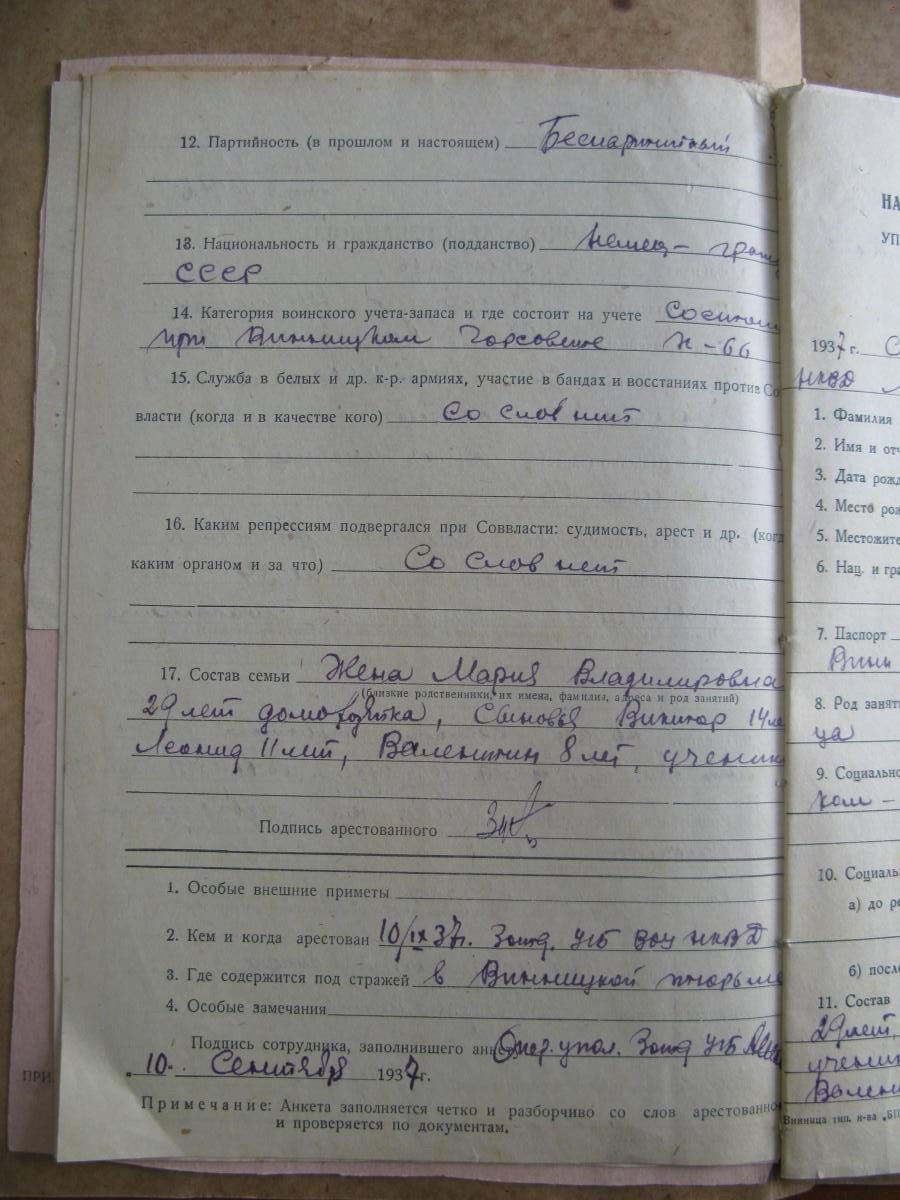 12. Партийность (в прошлом и настоящем) Беспартийный
13. Национальность и гражданство (подданство) немец – граж
СССР
14. Категория воинского учета-запаса и где состоит на учете Состоит
при Винницком Горсовете К-66
15. Служба в белых и др. к-р. армиях, участие в бандах и восстаниях против Со
власти (когда и в качестве кого) Со слов нет
16. Каким репрессиям подвергался при Соввласти: судимость, арест и др. (ког
каким органом и за что) Со слов нет
17. Состав семьи Жена Мария Владимировна
(близкие родственники, их имена, фамилия, адреса и род занятий)
29 лет домохозяйка, Сыновья Виктор 14 ле
Леонид 11 лет, Валентин 8 лет, ученик
Подпись арестованного
1. Особые внешние приметы
2. Кем и когда арестован 10/IX 37г. 3 отд. УГБ ВОУ НКВД
3. Где содержится под стражей в Винницкой тюрьме
4. Особые замечания
Подпись сотрудника, заполнившего анке Опер. упол. 3 отд УГБ
"10" Сентября 1937 г.
Примечание: Анкета заполняется четко и разборчиво со слов арестованно
и проверяется по документам.
ПРИ
НА
УП
1937 г. С
НКВД
1. Фамилия
2. Имя и отч
3. Дата рожд
4. Место рож
5. Местожите
6. Нац. и гра
7. Паспорт
Винн
8. Род заняти
ца
9. Социально
ком –
10. Социаль
а) до ре
б) после
11. Состав
29 лет,
ученик
Вален
Винница тип. н-ва „БІ